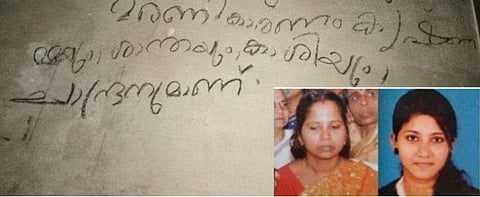 മരണ കാരണം കൃഷ്ണ
മ്മയും, ശാന്തയും, കാശിയും,
ചന്ദ്രനുമാണ്